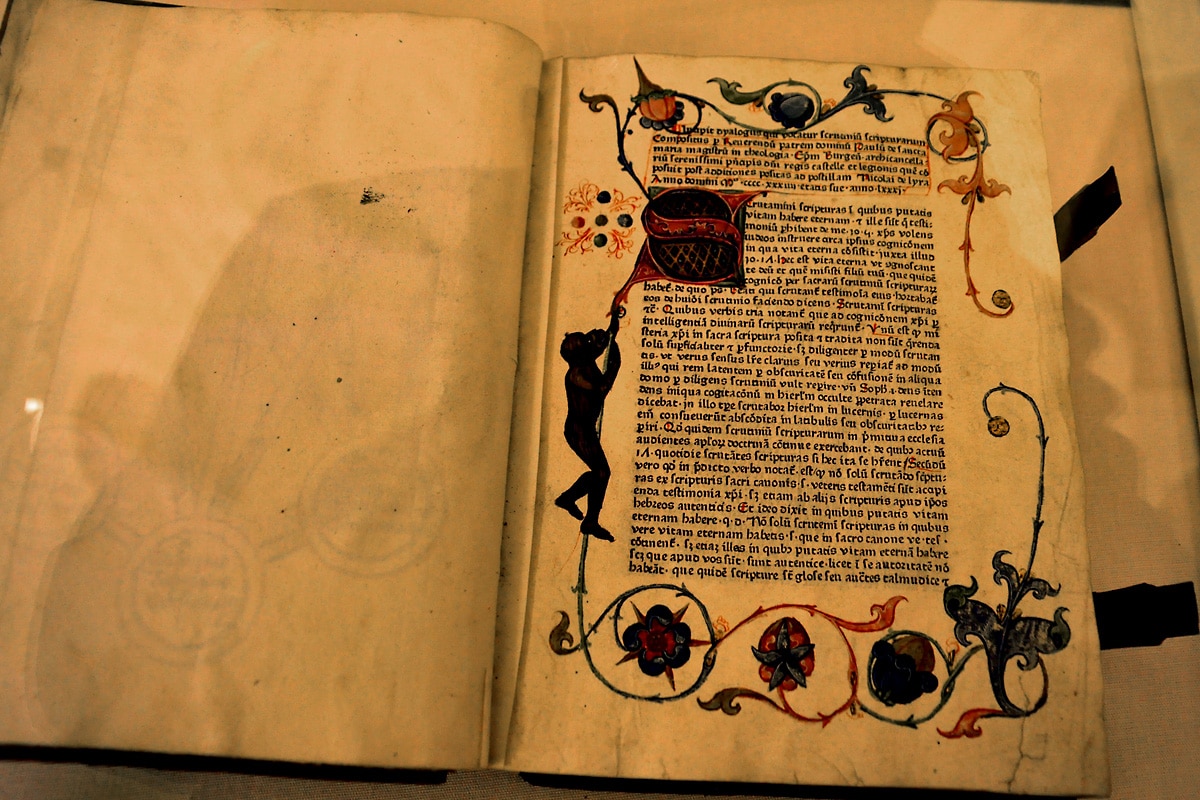 Incipit dyalogus qui vocatur scrutiniū scripturarum
Compositus ꝑ Reuerendū patrem dominū Paulū de sancta
maria magistrū in theologia · Ep̄m Burgeñ · archicancella
riū serenissimi prīcipis dñi regis castelle et legionis quē cō
posuit post additiones positas ad postillam Nicolai de lyra
Anno domini Mº · cccc · xxxiiii · etatis sue · anno · lxxxi ·
Scrutamini scripturas ī quibus putatis
vitam habere eternam · ⁊ ille sūt q̄ testi-
moniū ꝑhibent de me · io · 5 · xp̄s volens
iudeos instruere circa ipsius cognicōnem
in qua vita eterna cōsistit · iuxta illud
io · 17 · hec est vita eterna vt ognoscant
te deū et quē misisti filiū tuū · que quidē
cognicō per sacrarū scrutiniū scripturaꝝ
habet̄ · de quo ps̄ · Beati qui scrutant̄ testimoīa eius · hortabat̄
eos de huiōi scrutinio faciendo dicens · Scrutamī scripturas
⁊c̄ · Quibus verbis tria notant̄ que ad cognicōnem xp̄i ꝑ
intelligentiā diuinarū scripturarū reqrunt̄ · Vnū est ꝙ mi
steria xp̄i in sacra scriptura posita ⁊ tradita non sūt q̄renda
solū suꝑficialiter ⁊ ꝑfunctorie · sꝫ diligenter ꝑ modū scrutan
tis · vt verus sensus
illiꝰ qui rem latentem ꝑ obscuritatē seu cōfusionē in aliqua
domo ꝑ diligens scrutiniū vult reꝑire · vñ Soph · 1 · deusīten
dens iniqua cogitacōnū in hierl̄m occulte ꝑpetrata reuelare
dicebat · in illo tꝑe scrutaboꝛ hierl̄m in lucernis · ꝑ lucernas
eñ consueuerūt abscōdita in latibulis seu obscuritatibꝫ re-
ꝑiri · Qḋ quidem scrutiniū scripturarum in p̄mitiua ecclesia
audientes apl̄oꝝ doctrinā cōtinue exercebant · de quibꝫ actuū
17 · quotidie scrutātes scripturas si hec ita se hr̄ent / Secūdū
vero qḋ in p̄dicto verbo notat̄ · est ꝙ nō solū scrutādo scptu-
ras ex scripturis sacri canonis · s · veteris testamēti sūt accipi
enda testimonia xp̄i · sꝫ etiam ab alijs scripturis apud ip̄os
hebreos autenticis · Et ideo dixit in quibus putatis vitam
eternam habere · q · d · Nō solū scrutemī scripturas in quibus
vere vitam eternam habetis · s · que in sacro canone ve · tes ·
cōtinent̄ · sꝫ etiaꝫ illas in quibꝫ putatis vitam eternā habere
scꝫ que apud vos sūt · sunt autentice · licet ī se autoritatē nō
habeāt · que quidē scripture sūt glose seu auctes talmudice ⁊